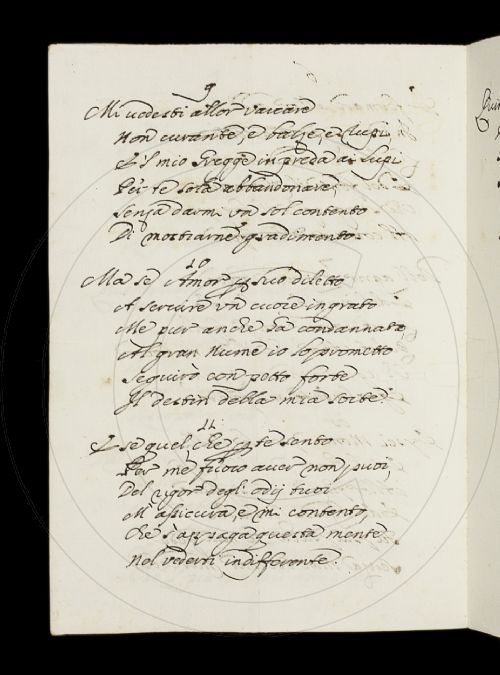 9
Mi vedesti allor varcare
Non curante, e balze, e rupi
E il mio Gregge in preda ai Lupi
Per te sola abbandonare,
Senza darmi un sol contento
Di mostrarne gradimento.
10
Ma se Amor p suo diletto
A servire un cuore ingrato
Me pur anche ha condannato,
Al gran Nume io lo prometto
Seguirò con petto forte
Il destin della mia sorte.
11
E se quel, che p te sento
Per me fuoco aver non puoi,
Del rigor degl' odij tuoi
M' assicura, e mi contento,
Che s' appaga questa mente
Nel vederti indifferente.